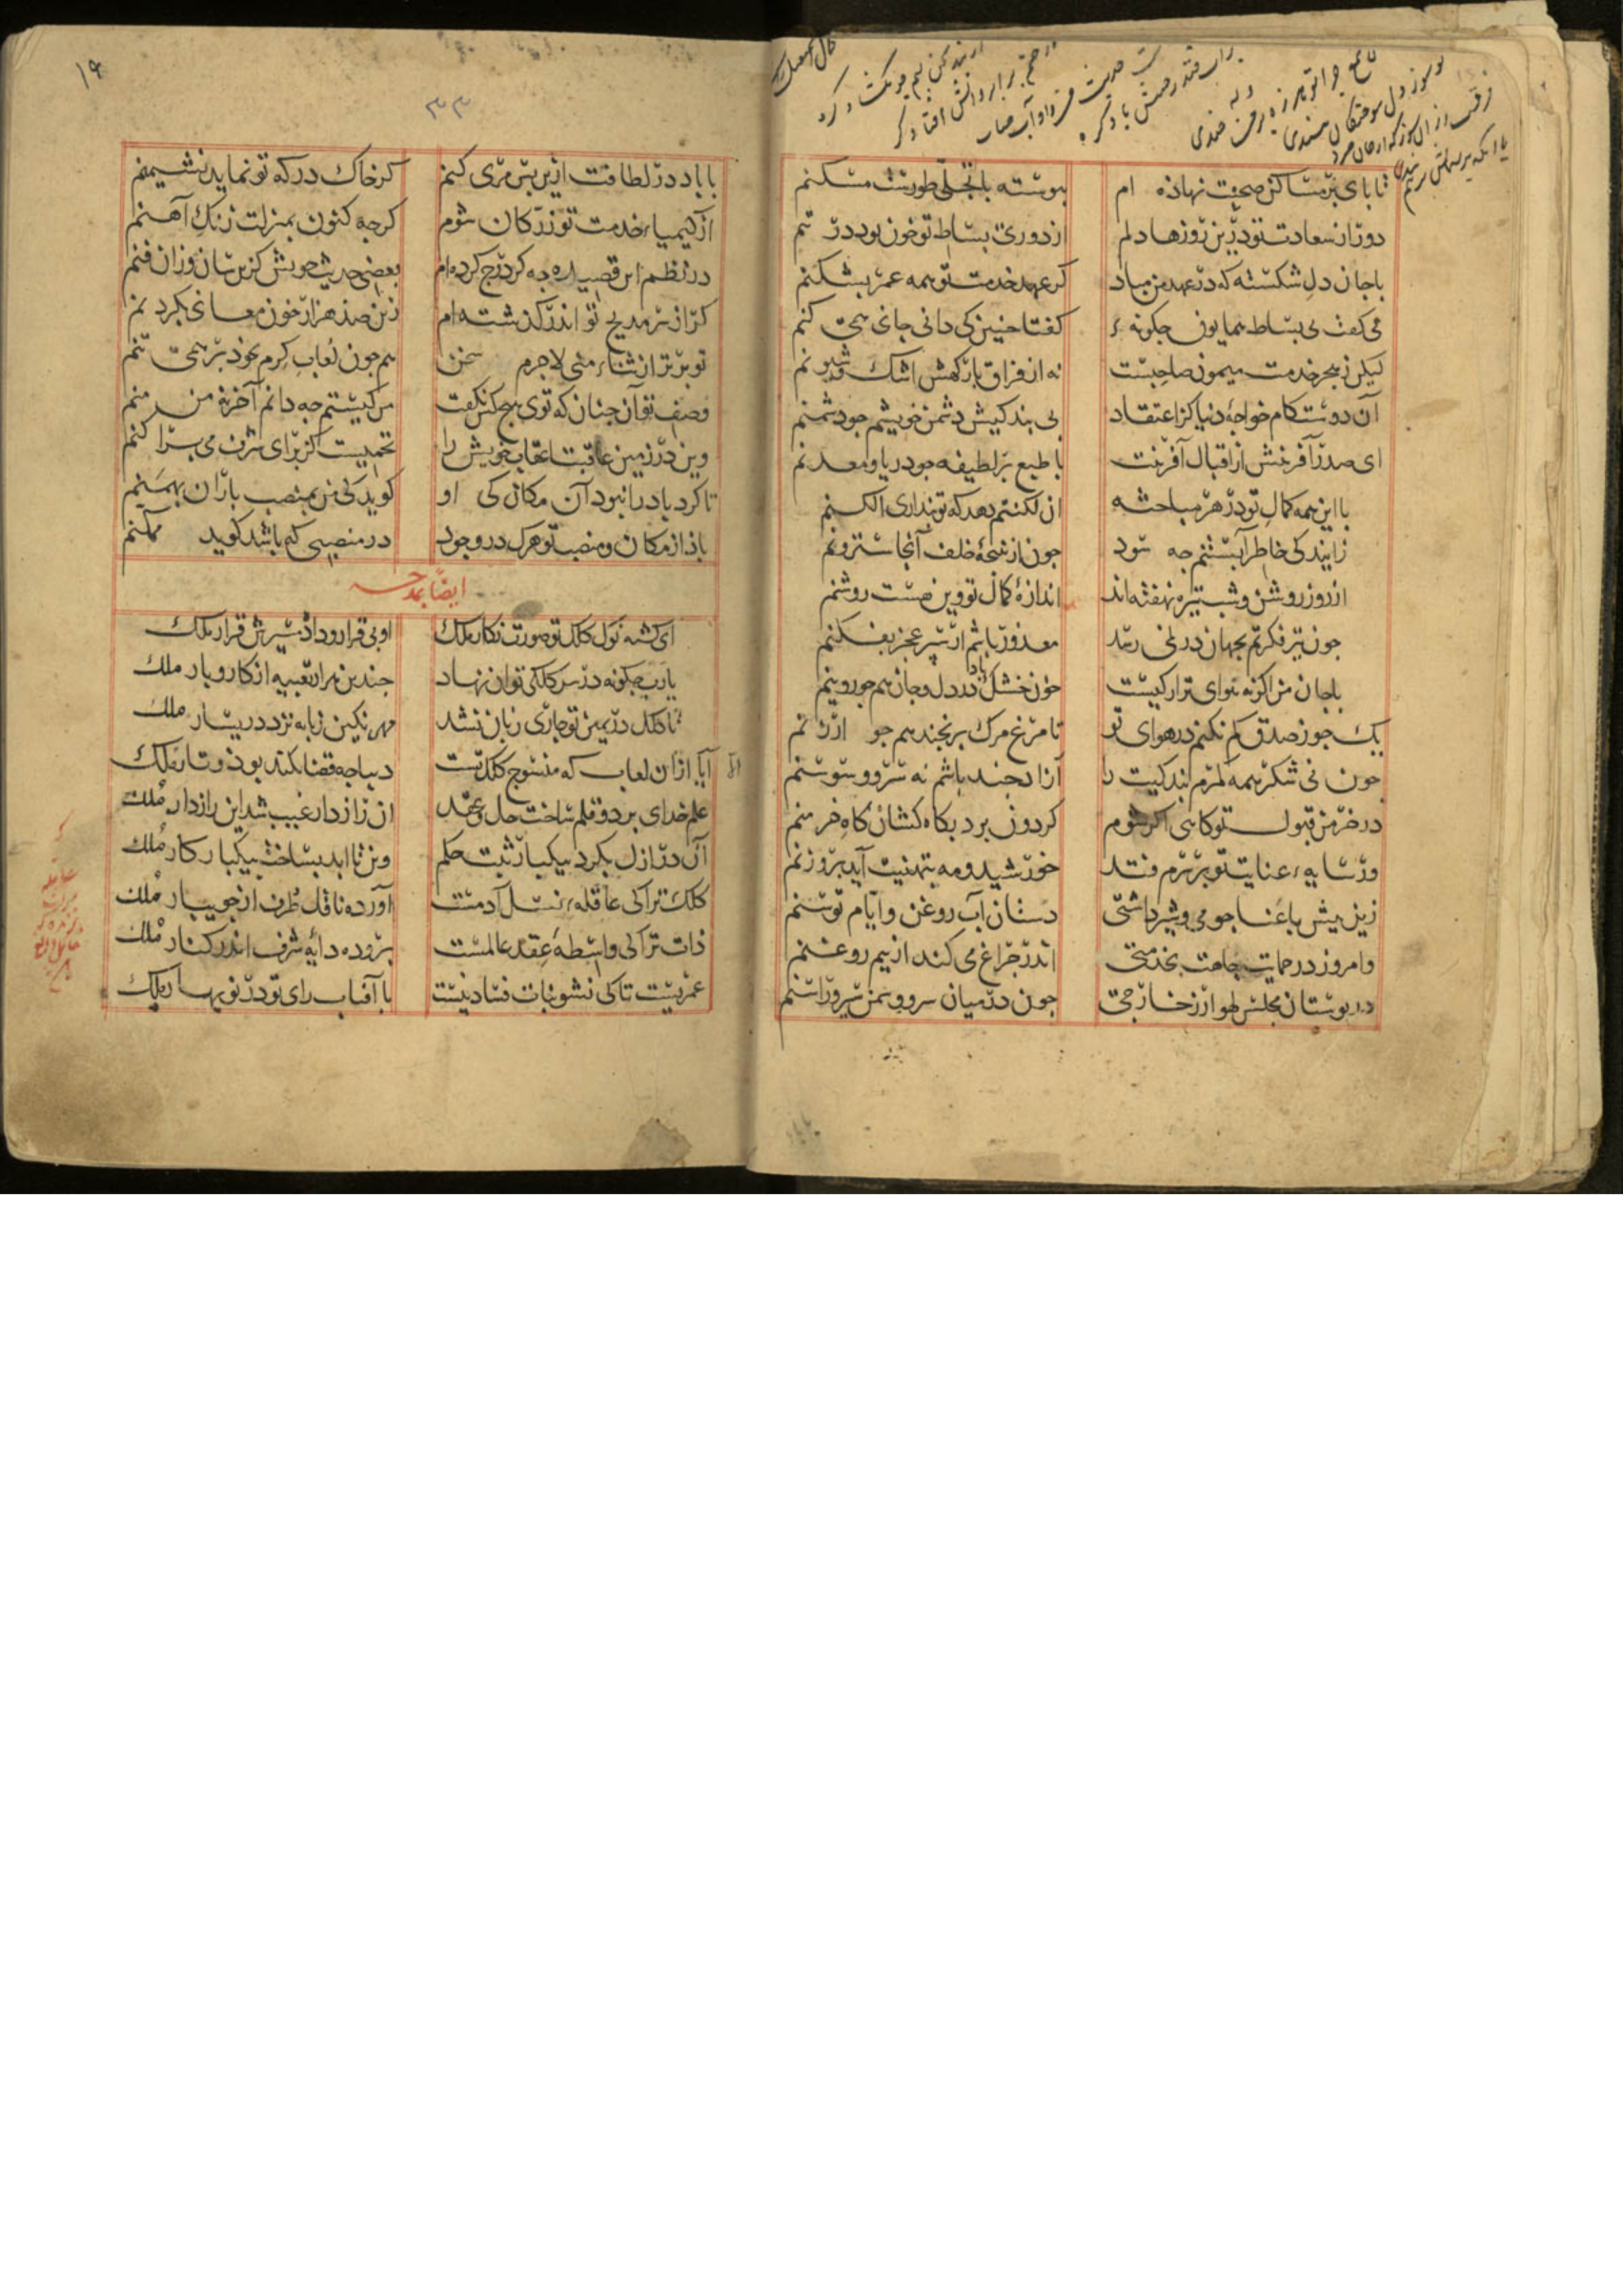 تا پای بر مساکن صحبت نهاده ام
پیوسته با تجلی طورست مسکنم
دور از سعادت تو درین روزها دلم
از دوری بساط تو خون بود در تنم
با جان دل شکسته که در عهد من مباد
کر عهد خدمت تو همه عمر بشکنم
می کفت بی بساط همایون جکونه ء
کفتا جنین کی دانی جانی همی کنم
لیکن ز هجر خدمت میمون صاحبست
نه از فراق بارکهش اشک و شیونم
آن دوستکام خواجۀ دنیا کز اعتقاد
بی بندکیش دشمن خویشم جو دشمنم
ای صدر آفرینش از اقبال آفرینت
با طبع بر لطیفه جو دریا و معدنم
با این همه کمال تو در هر مباحثه
ان لکنتم دهد که تو بنداری الکنم
زایندکی خاطر آبستنم جه سود
جون از نتیجۀ خلف آنجا سترونم
از روز روشن و شب تیره نهفته اند
اندازۀ کمال تو وین هست روشنم
جون تیر فکرتم بجهان در نمی رسد
معذور باشم ار سبر عجز بفکنم
با جان من اکر نه هوای ترا رکیست
خون خشک بادا در دل و جان هم جو روینم
یک جو ز صدق کم نکنم در هوای تو
تا مرغ مرک بر نجند هم جو ارزنم
جون نی شکر همه کمرم بندکیت را
آزاد جند باشم نه سرو و سوسنم
در خرمن قبول تو کاهی اکر شوم
کردون برد بکاه کشان کاه خرمنم
ور سایهء عنایت تو بر سرم فتد
خورشید و مه بتهنیت آید بروزنم
زین بیش با عنا جو می و شیر داشتی
دستان آب روغن و ایام توسنم
وامروز در حمایت جاهت بخدمتی
اندر جراغ می کند از بیم روغنم
در بوستان مجلس لهو ار ز خار جی
جون در میان سرو و سمن سیر و راسنم
۱۹
۳۳
با باد در لطافت ازین بس مری کنم
کر خاک درکه تو نماید نشیمنم
از کیمیاء خدمت تو زر کان شوم
کرجه کنون بمنزلت زنک آهنم
در نظم این قصیده جه کر درج کرده ام
بعضی حدیث خویش کزین سان وزان فنم
کر از سر مدیح تو اندر کذشته ام
زین صد هزار خون معانی بکردنم
تو برتر از ثناء منی لاجرم سخن
هم جون لعاب کرم بخود بر همی تنم
وصف تو آن جنان که توی هیج کس نکفت
من کیستم جه دانم آخر نه من منم
وین در زمین عاقبت اعقاب خویش را
تخمیست کز برای شرف می براکنم
تا کرد باد را نبود آن مکان کی او
کوید کی من بمنصب باران بهمنم
باد از مکان و منصب تو هرک در وجود
در منصبی که باشد کوید ممکنم
ایضا یمدحه
ای کشته نوک کلک تو صورت نکار ملک
او بی قرار و داده سیرش قرار ملک
یارب جکونه در سر کلکی توان نهاد
جندین هزار تعبیه از کار و بار ملک
تا کلک در یمین تو جاری زبان نشد
مهر نکین زبانه نزد در یسار ملک
آیا ازان لعاب که منسوج کلک تست
دیباجه قضا بکند بود و تار ملک
علم خدای بر دو قلم ساخت حل و عقد
ان راز دار غیب شد این راز دار ملک
آن در ازل بکرد بیکبار ثبت حکم
وین تا ابد بساخت بیکبار کار ملک
کلک ترا کی عاقلهء نسل آدمست
آورده ناقل طرف از جویبار ملک
ذات ترا کی واسطۀ عقد عالمست
برورده دایۀ شرف اندر کنار ملک
عمریست تا کی نشو نبات فساد نیست
با آفتاب رای تو در نوبهار ملک